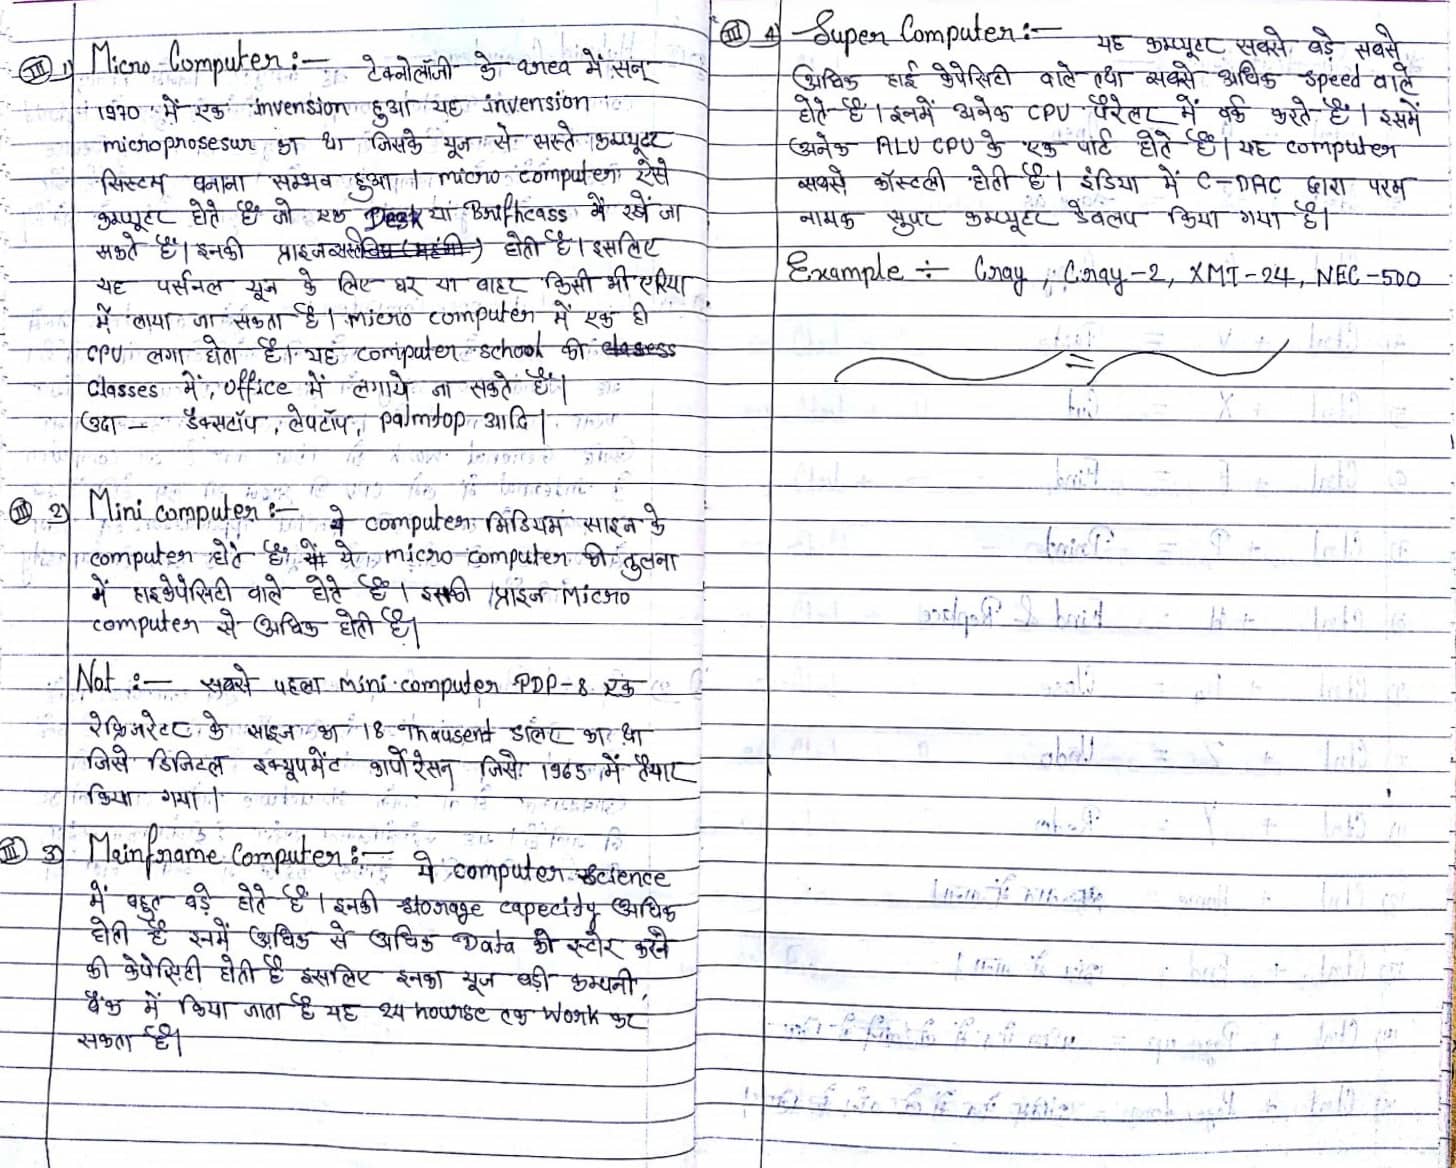 III 1) Micro Computer :- टेक्नोलॉजी के area में सन्
1970 में एक invension हुआ यह invension
microprosesur का था जिसके यूज से सस्ते कम्प्यूटर
सिस्टम बनाना सम्भव हुआ। micro computer ऐसे
कम्प्यूटर होते है जो एक Desk या Brifhcass में रखे जा
सकते है। इनकी प्राइज सस्ती होती है। इसलिए
यह पर्सनल यूज के लिए घर या बाहर किसी भी एरिया
में लाया जा सकता है। micro computer में एक ही
CPU लगा होता है। यह computer school की
Classes में, office में लगाये जा सकते है।
उदा - डेक्सटॉप, लेपटॉप, palmtop आदि।
III 2) Mini computer :- ये computer मिडियम साइज के
computer होते है ये micro computer की तुलना
में हाइकेपेसिटी वाले होते है। इसकी प्राइज Micro
computer से अधिक होती है।
Not :- सबसे पहला mini computer PDP-8 एक
रेफ्रिजरेटर के साइज का 18 Thausent डालर का था
जिसे डिजिटल इक्यूपमेंट कार्पोरेसन जिसे 1965 में तैयार
किया गया।
III 3) Mainframe Computer :- ये computer Science
में बहुत बड़े होते है। इनकी storage capecidy अधिक
होती है इनमें अधिक से अधिक Data को स्टोर करने
की केपेसिटी होती है इसलिए इनका यूज बड़ी कम्पनी,
बैंक में किया जाता है यह 24 hourse तक work कर
सकता है।
III 4) Super Computer :- यह कम्प्यूटर सबसे बड़े सबसे
अधिक हाई केपेसिटी वाले तथा सबसे अधिक speed वाले
होते है। इनमें अनेक CPU पैरेलर में वर्क करते है। इसमें
अनेक ALU CPU के एक पार्ट होते है। यह computer
सबसे कॉस्टली होती है। इंडिया में C-DAC द्वारा परम
नामक सुपर कम्प्यूटर डेवलप किया गया है।
Example ÷ Cray, Cray-2, XMT-24, NEC-500